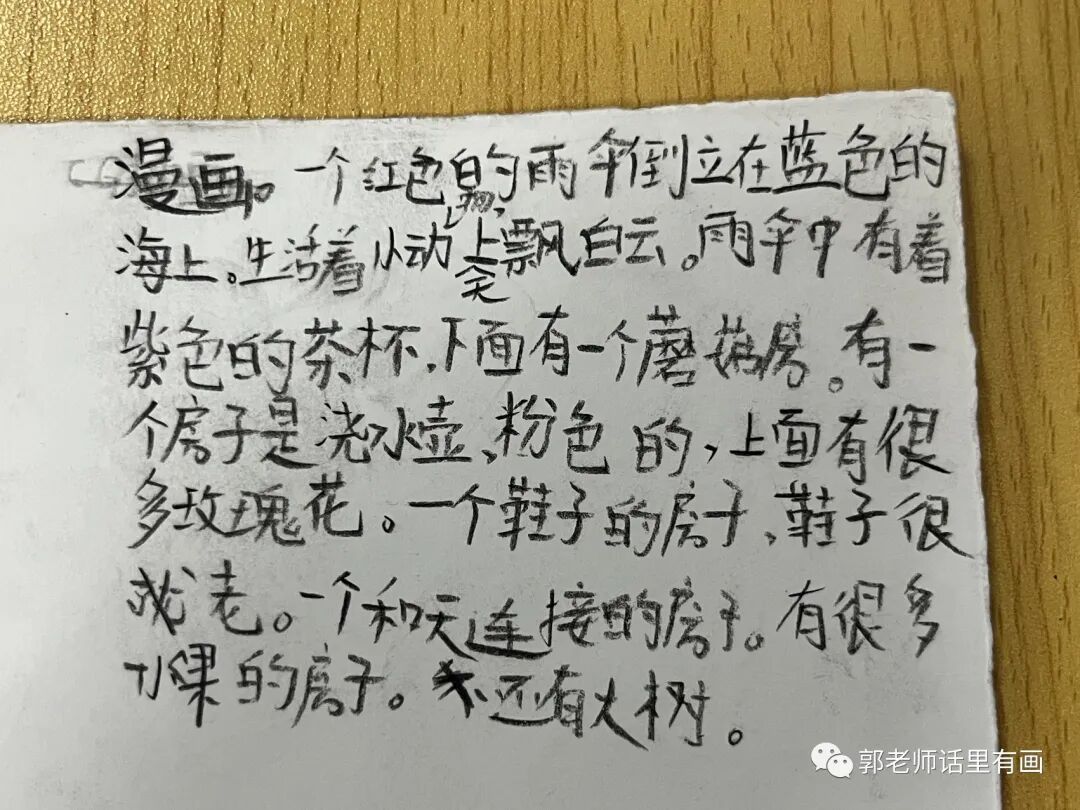 漫画。一个红色的雨伞倒立在蓝色的
海上。生活着小动物，天上飘白云。雨伞中有着
紫色的茶杯，下面有一个蘑菇房。有一
个房子是浇水壶、粉色的，上面有很
多玫瑰花。一个鞋子的房子、鞋子很
老。一个和天连接的房子。有很多
果的房子。还有大树。
郭老师话里有画